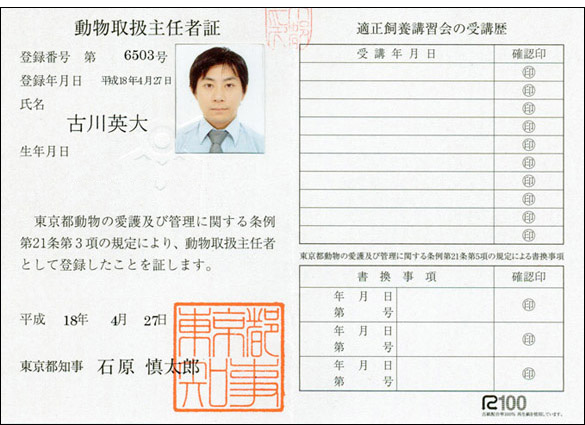 動物取扱主任者証
登録番号 第 6503号
登録年月日 平成18年4月27日
氏名
古川英大
生年月日
東京都動物の愛護及び管理に関する条例
第21条第3項の規定により、動物取扱主任者
として登録したことを証します。
平成 18年 4月 27日
東京都知事 石原 慎太郎
東京都知事
適正飼養講習会の受講歴
受講年月日 確認印
印
印
印
印
印
印
印
印
印
印
東京都動物の愛護及び管理に関する条例第21条第5項の規定による書換事項
書換事項 確認印
年 月 日
第 号
印
年 月 日
第 号
印
年 月 日
第 号
印
R100
古紙配合率100%再生紙を使用しています。